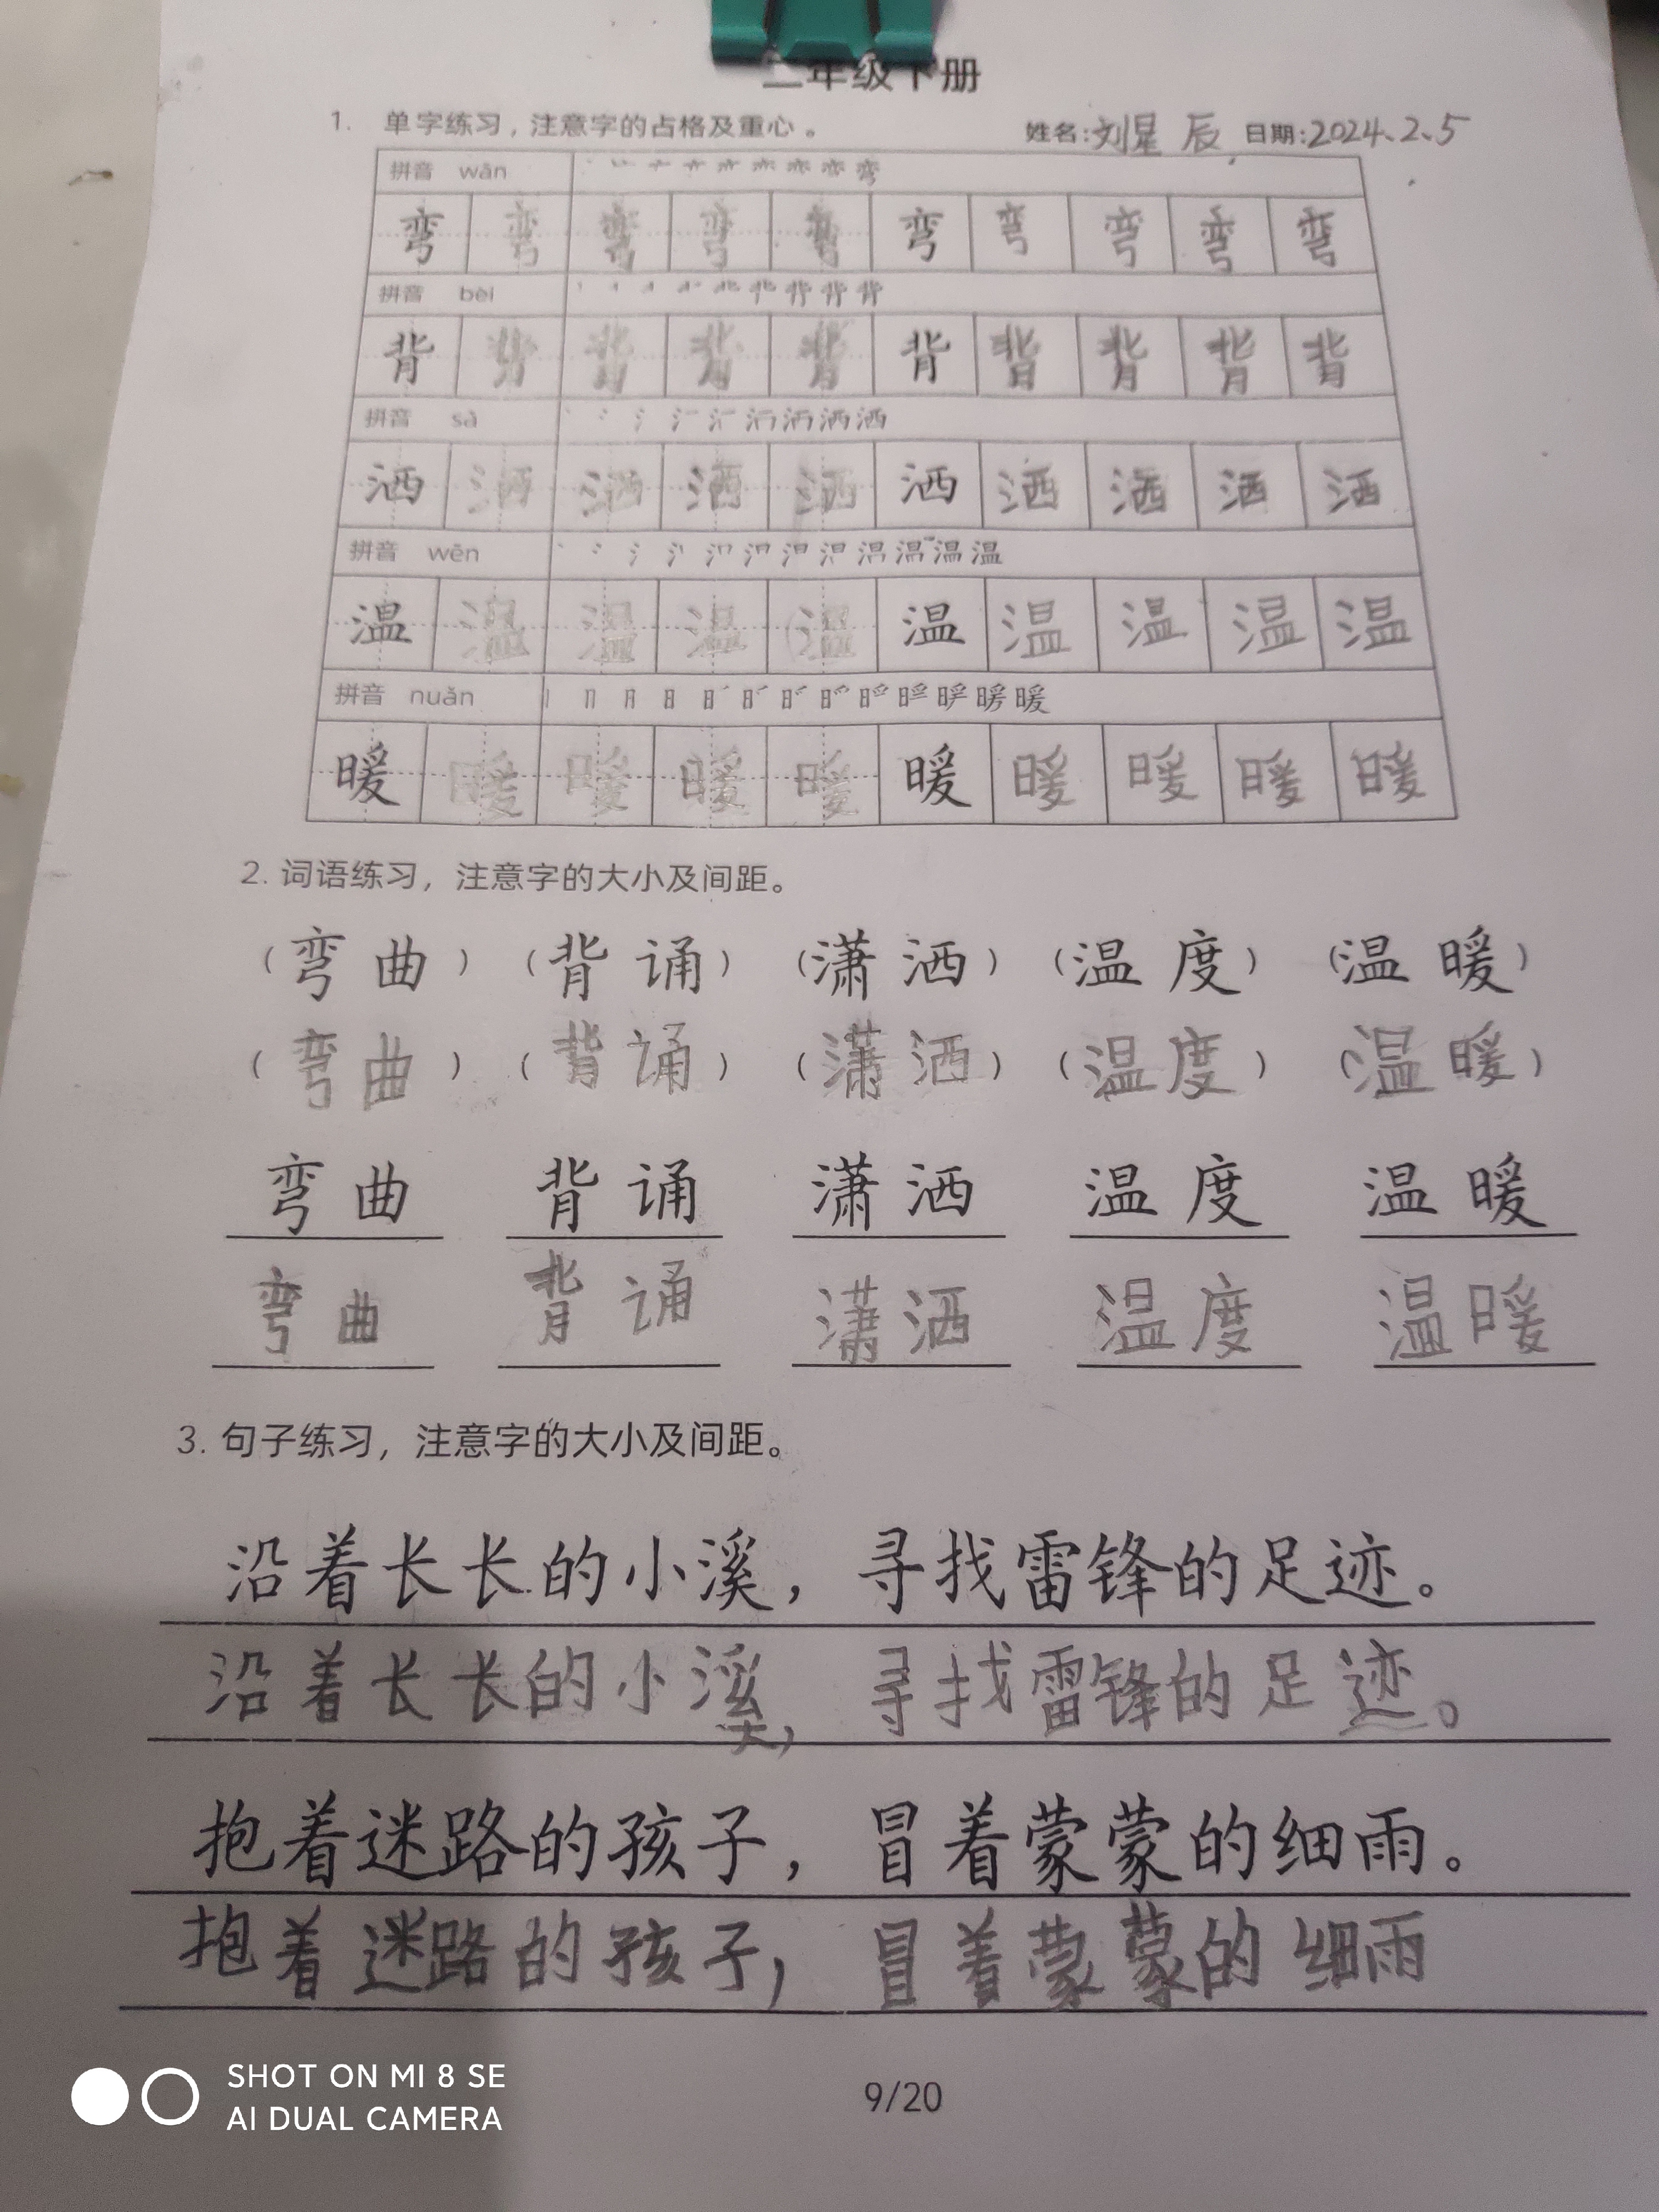 二年级下册
1. 单字练习，注意字的占格及重心。 姓名:刘星辰 日期:2024.2.5
拼音 wān 弯
弯 弯 弯 弯 弯 弯 弯 弯 弯 弯
拼音 bèi 背
背 背 背 背 背 背 背 背 背 背
拼音 sǎ 洒
洒 洒 洒 洒 洒 洒 洒 洒 洒 洒
拼音 wēn 温
温 温 温 温 温 温 温 温 温 温
拼音 nuǎn 暖
暖 暖 暖 暖 暖 暖 暖 暖 暖 暖
2. 词语练习，注意字的大小及间距。
（弯曲）（背诵）（潇洒）（温度）（温暖）
（弯曲）（背诵）（潇洒）（温度）（温暖）
弯曲 背诵 潇洒 温度 温暖
弯曲 背诵 潇洒 温度 温暖
3. 句子练习，注意字的大小及间距。
沿着长长的小溪，寻找雷锋的足迹。
沿着长长的小溪，寻找雷锋的足迹。
抱着迷路的孩子，冒着蒙蒙的细雨。
抱着迷路的孩子，冒着蒙蒙的细雨
9/20
SHOT ON MI 8 SE
AI DUAL CAMERA